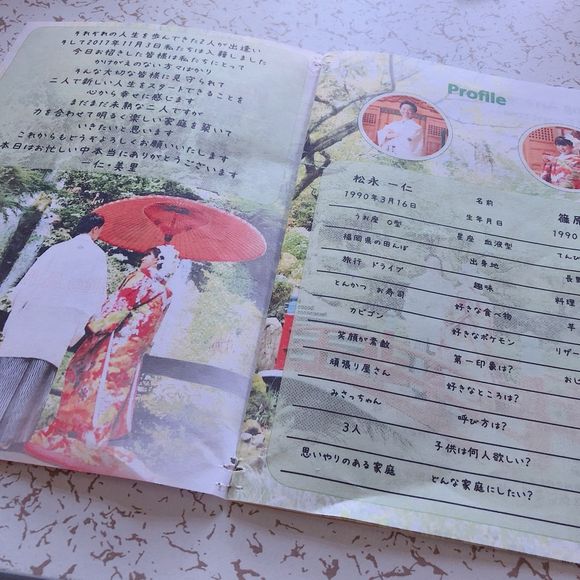 それぞれの人生を歩んできた2人が出逢い
そして2017年11月3日私たちは入籍しました
今日お招きした皆様は私たちにとって
かけがえのない方々ばかり
そんな大切な皆様に見守られて
二人で新しい人生をスタートできることを
心から幸せに感じます
まだまだ未熟な二人ですが
力を合わせて明るく楽しい家庭を築いて
いきたいと思います
これからもどうぞよろしくお願いいたします
本日はお忙しい中本当にありがとうございます
一仁・美里
Profile
松永 一仁 名前 篠原
1990年3月16日 生年月日 1990
うお座 O型 星座 血液型 てんび
福岡県の田んぼ 出身地 長
旅行 ドライブ 趣味 料理
とんかつ お寿司 好きな食べ物 芋
カビゴン 好きなポケモン リザー
笑顔が素敵 第一印象は?
頑張り屋さん 好きなところは? おし
みさっちゃん 呼び方は?
3人 子供は何人欲しい?
思いやりのある家庭 どんな家庭にしたい?